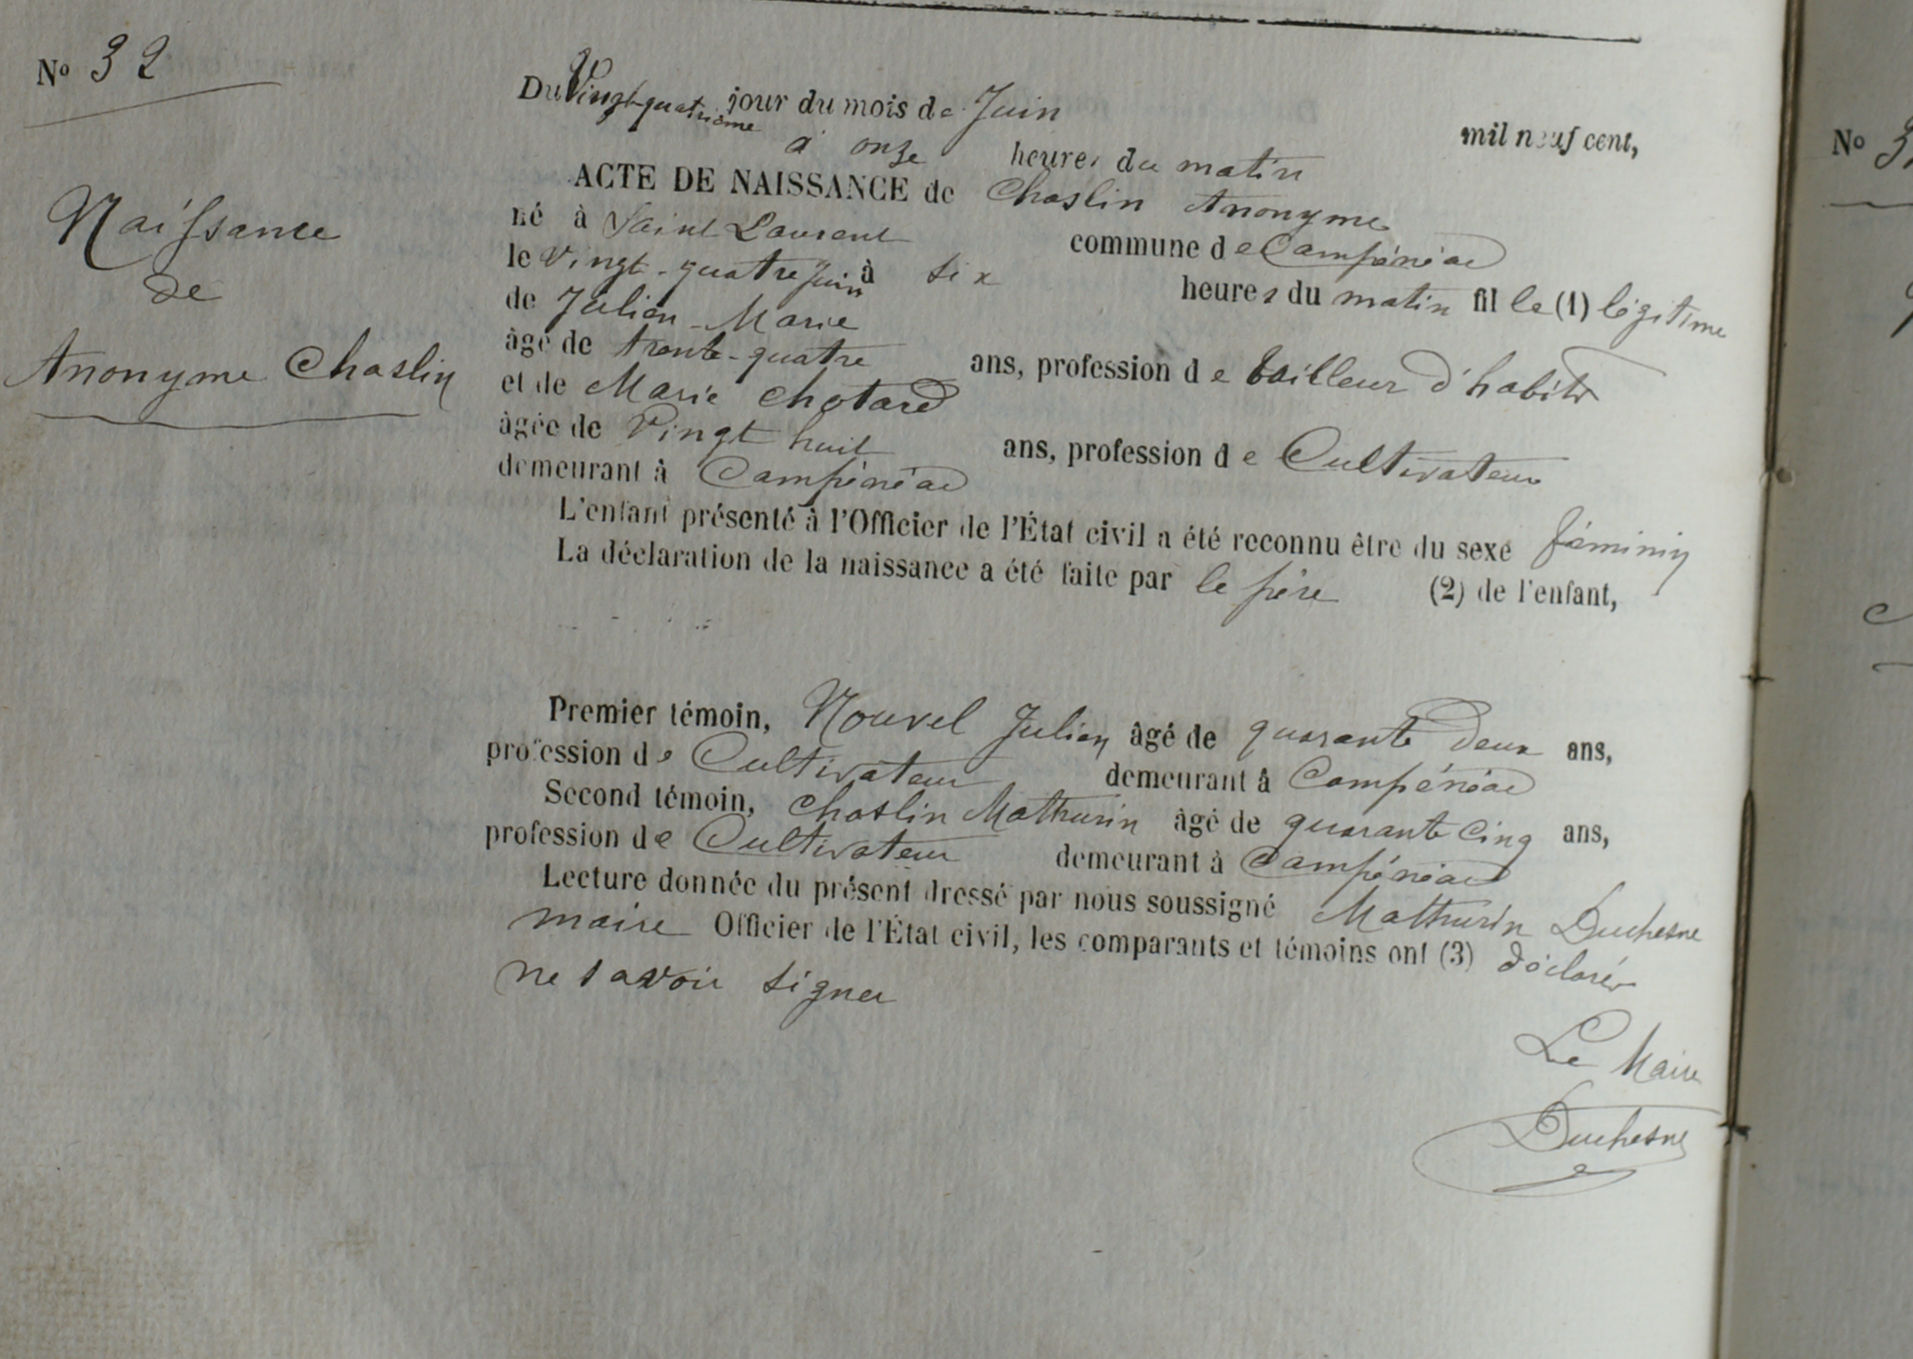 No 32
Naissance
de
Anonyme Chaslin
Du Vingt-quatrième jour du mois de Juin mil neuf cent,
à onze heures du matin
ACTE DE NAISSANCE de Chaslin Anonyme
né à Saint Laurent commune de Campénéac
le Vingt-quatre Juin à six heures du matin fille (1) légitime
de Julien-Marie
âgé de trente-quatre ans, profession de tailleur d'habits
et de Marie Chotard
âgée de Vingt huit ans, profession de Cultivateur
demeurant à Campénéac
L'enfant présenté à l'Officier de l'État civil a été reconnu être du sexe féminin
La déclaration de la naissance a été faite par le père (2) de l'enfant,
Premier témoin, Nouvel Julien âgé de quarante deux ans,
profession de Cultivateur demeurant à Campénéac
Second témoin, Chaslin Mathurin âgé de quarante cinq ans,
profession de Cultivateur demeurant à Campénéac
Lecture donnée du présent dressé par nous soussigné Mathurin Duchesne
maire Officier de l'État civil, les comparants et témoins ont (3) déclarés
ne savoir signer
Le Maire
Duchesne
No